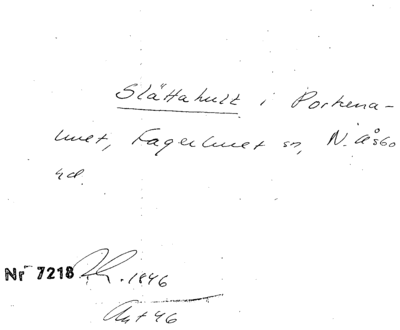 Slättahult i Porkena-
hult, Fagerhult sn, N. Åsbo
hd.
Nr 7218 1846
Avt 46